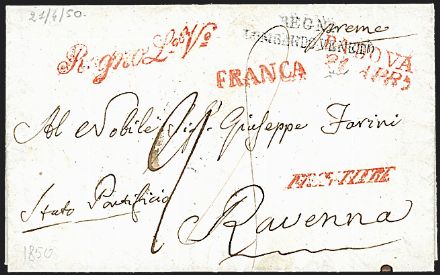 21/4/50.
Regno L.º V.º
REGNO
LOMBARDO VENETO
preme
PADOVA
21 APR.
FRANCA
Al Nobile Sig.r Giuseppe Farini
Stato Pontificio
Ravenna
1850